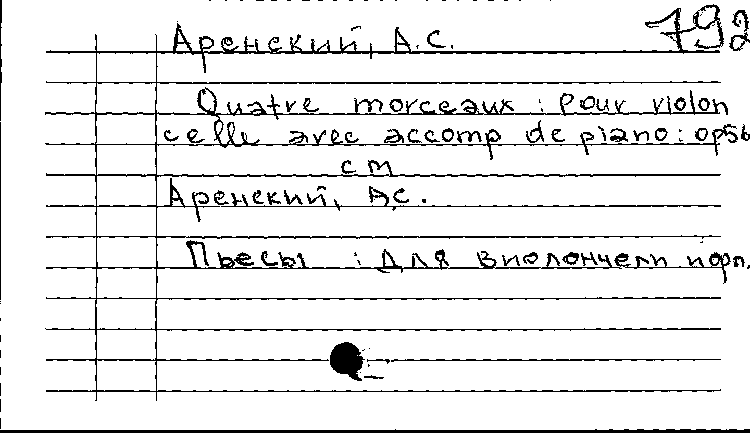 792
Аренский, А.С.
Quatre morceaux : pour violon
celle avec accomp de piano : op56
см
Аренский, А.С.
Пьесы : для виолончели и фп.